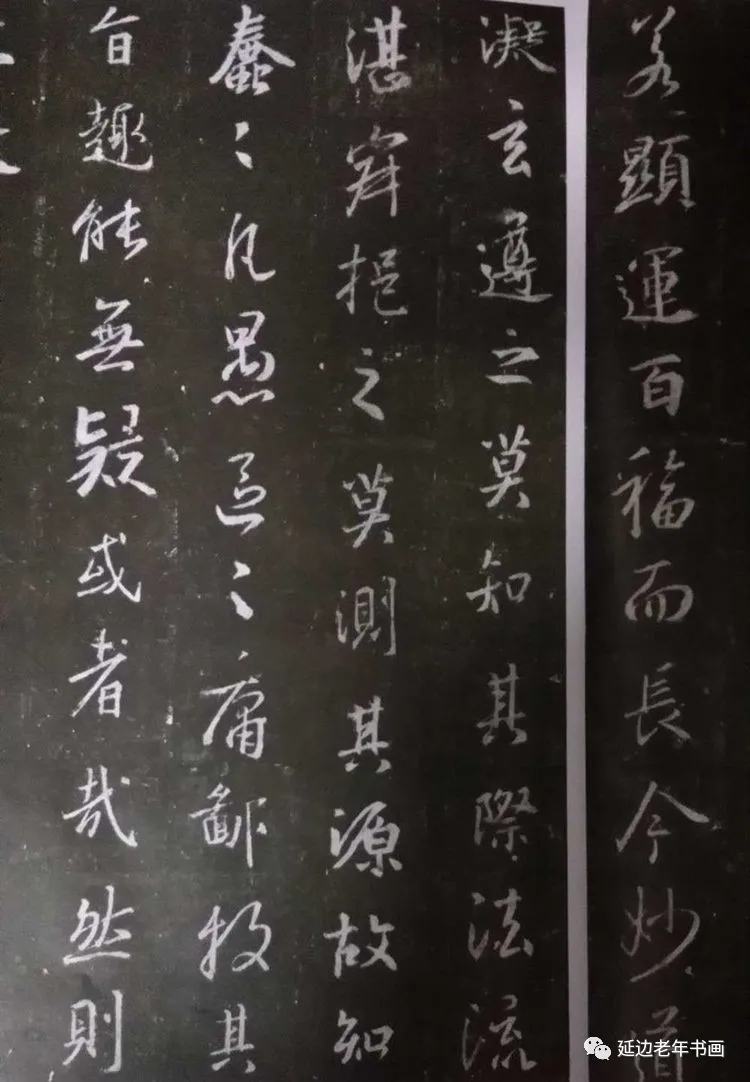 若顯運百福而長今妙道
凝玄遵之莫知其際法流
湛寂挹之莫測其源故知
蠢〻凡愚區〻庸鄙投其
旨趣能無疑或者哉然則
延边老年书画